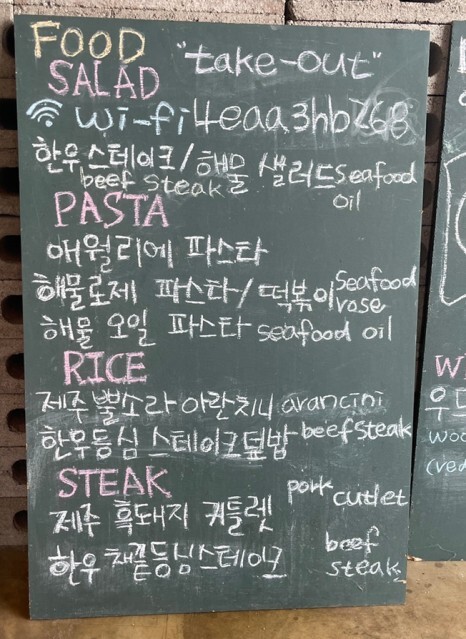 FOOD "take-out"
SALAD
wi-fi 4eaa3hb268
한우스테이크/해물 샐러드 seafood
beef steak oil
PASTA
애월리에 파스타
해물로제 파스타/떡볶이 seafood rose
해물 오일 파스타 seafood oil
RICE
제주뿔소라 아란치니 arancini
한우등심 스테이크덮밥 beef steak
STEAK
제주 흑돼지 커틀렛 pork cutlet
한우 채끝등심스테이크 beef steak
W
우드
woo
(ved